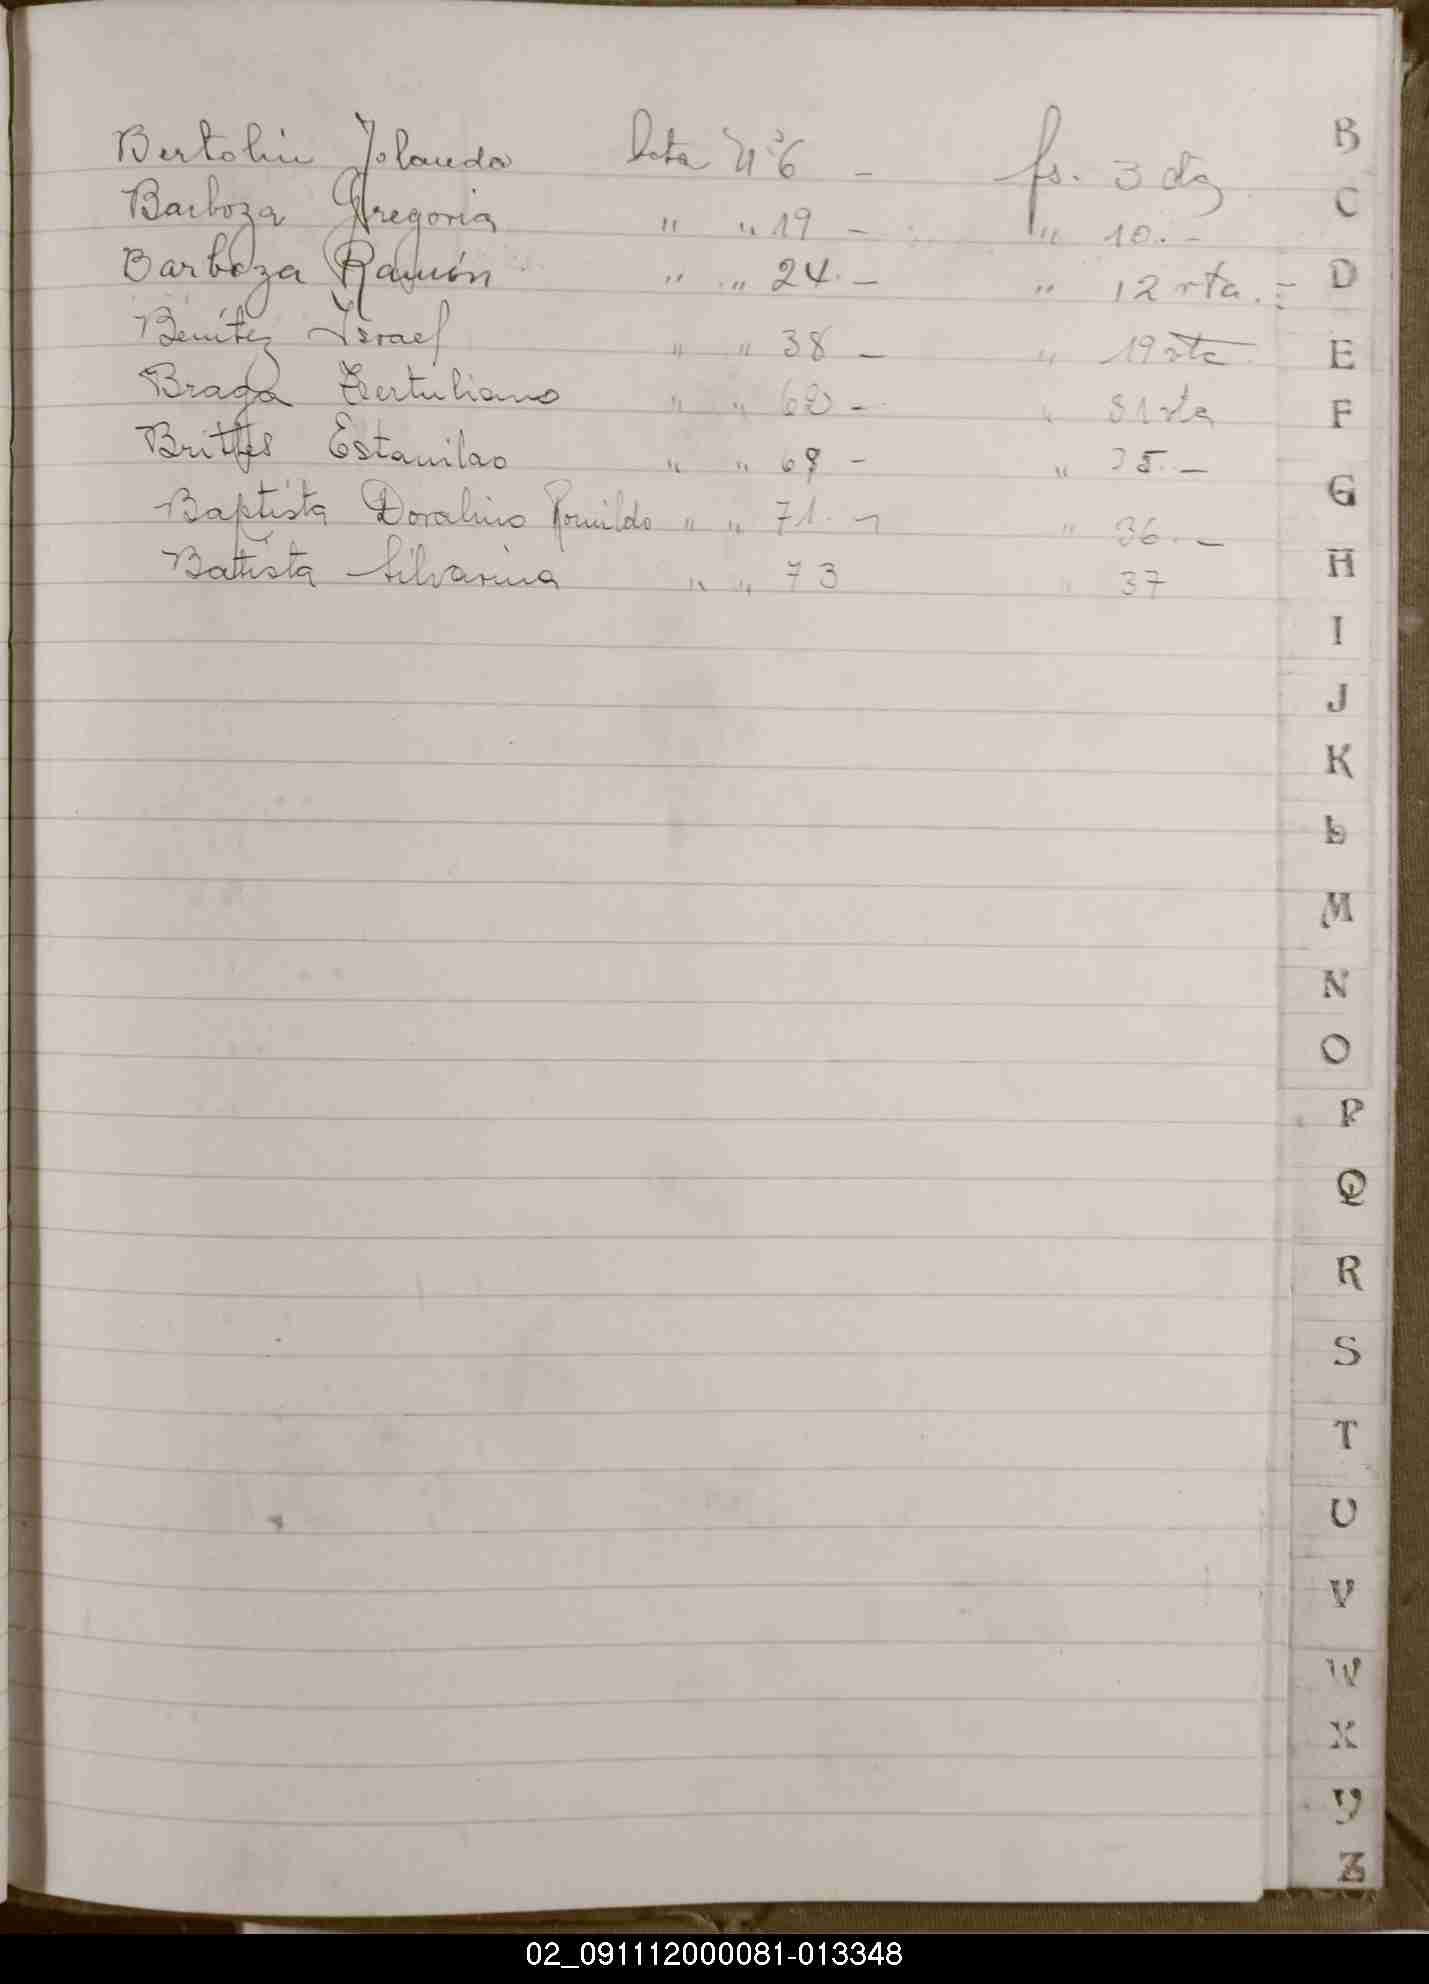 Bertolin Yolanda Acta Nº 6 - fs. 3 vta
Barboza Gregoria " " 19 - " 10. -
Barboza Ramón " " 24. - " 12 vta. =
Benítez Israel " " 38 - " 19 vta
Braga Tertuliano " " 62 - " 31 vta
Brittes Estanilao " " 69 - " 35. -
Baptista Doralino Romildo " " 71. - " 36. -
Battista Silvarina " " 73 " 37
B
C
D
E
F
G
H
I
J
K
L
M
N
O
P
Q
R
S
T
U
V
W
X
Y
Z
02_091112000081-013348